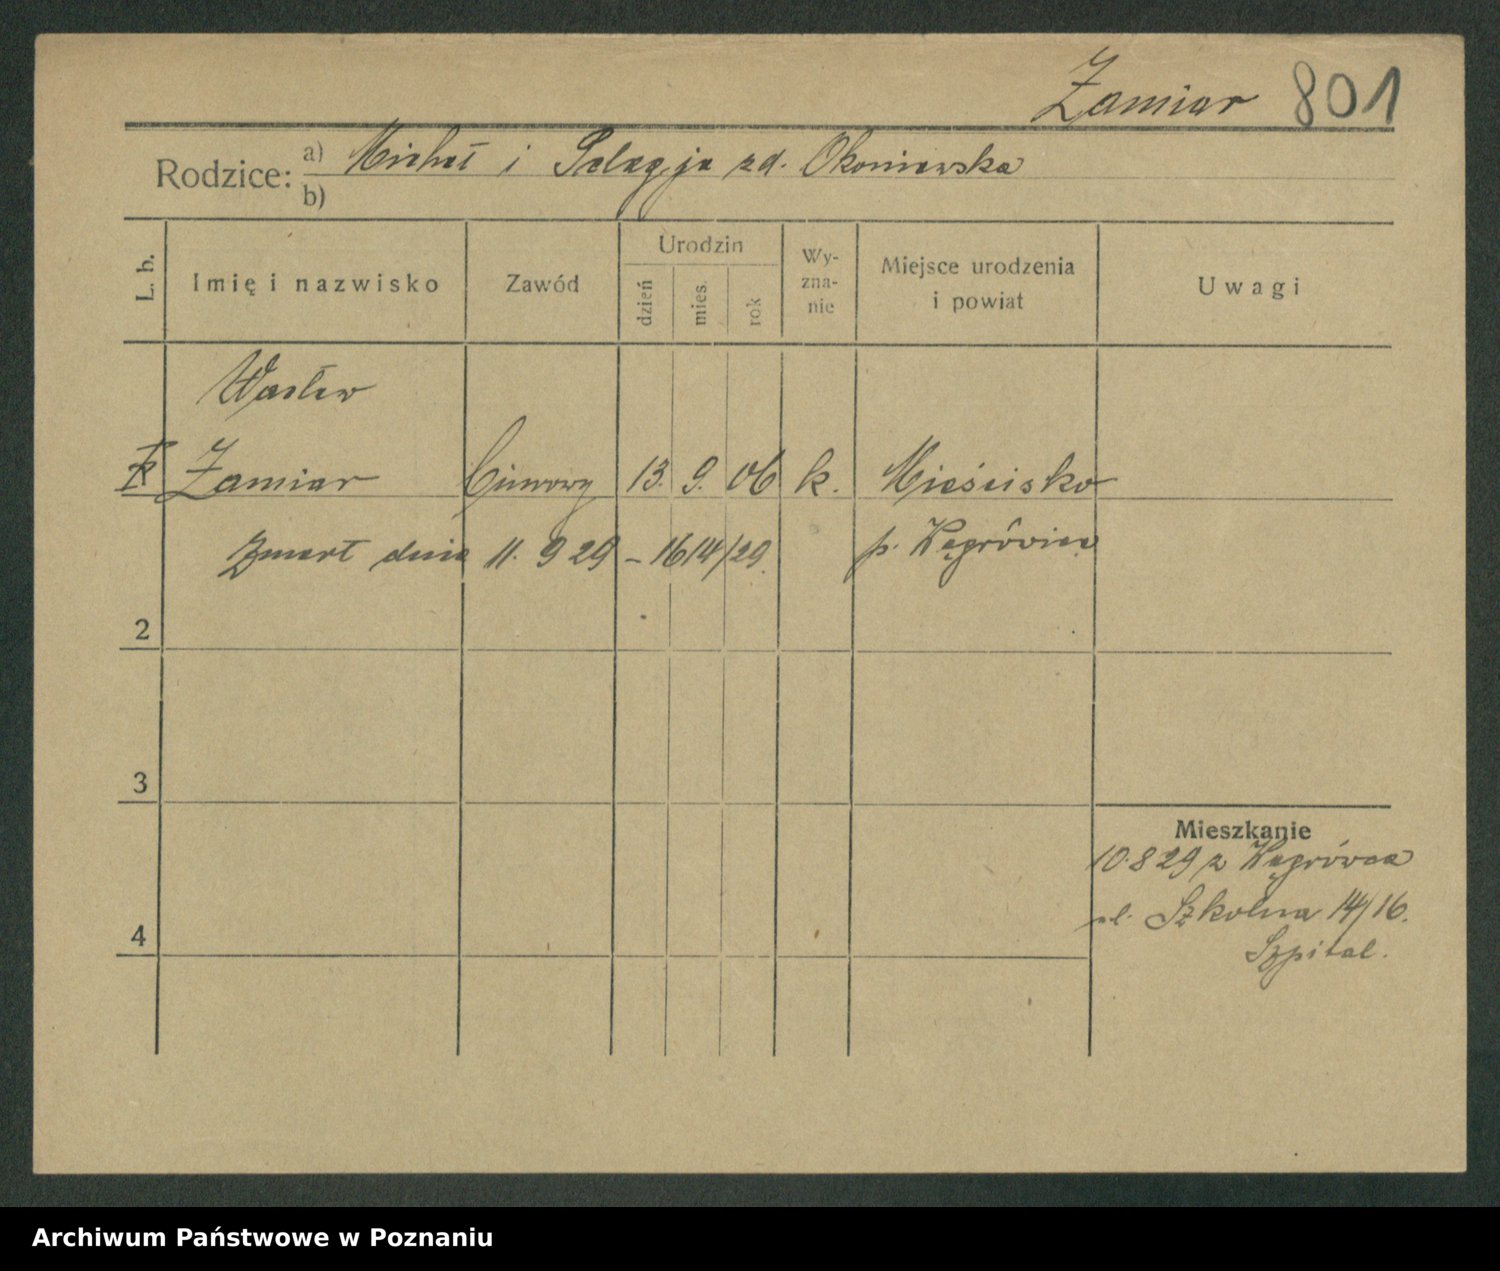 Zamiar 801
Rodzice: a) Michał i Pelagja zd. Okoniewska
b)
L. b.
Imię i nazwisko
Zawód
Urodzin
dzień
mies.
rok
Wy-
zna-
nie
Miejsce urodzenia
i powiat
Uwagi
Wacław
Zamiar 13. 9. 06 k. Mieścisko
Zmarł dnia 11. 9 29 – 1614/29. p. Wągrówiec
2
3
4
Mieszkanie
10.8 29 z Wągrówca
ul. Szkolna 14/16.
Szpital.
Archiwum Państwowe w Poznaniu